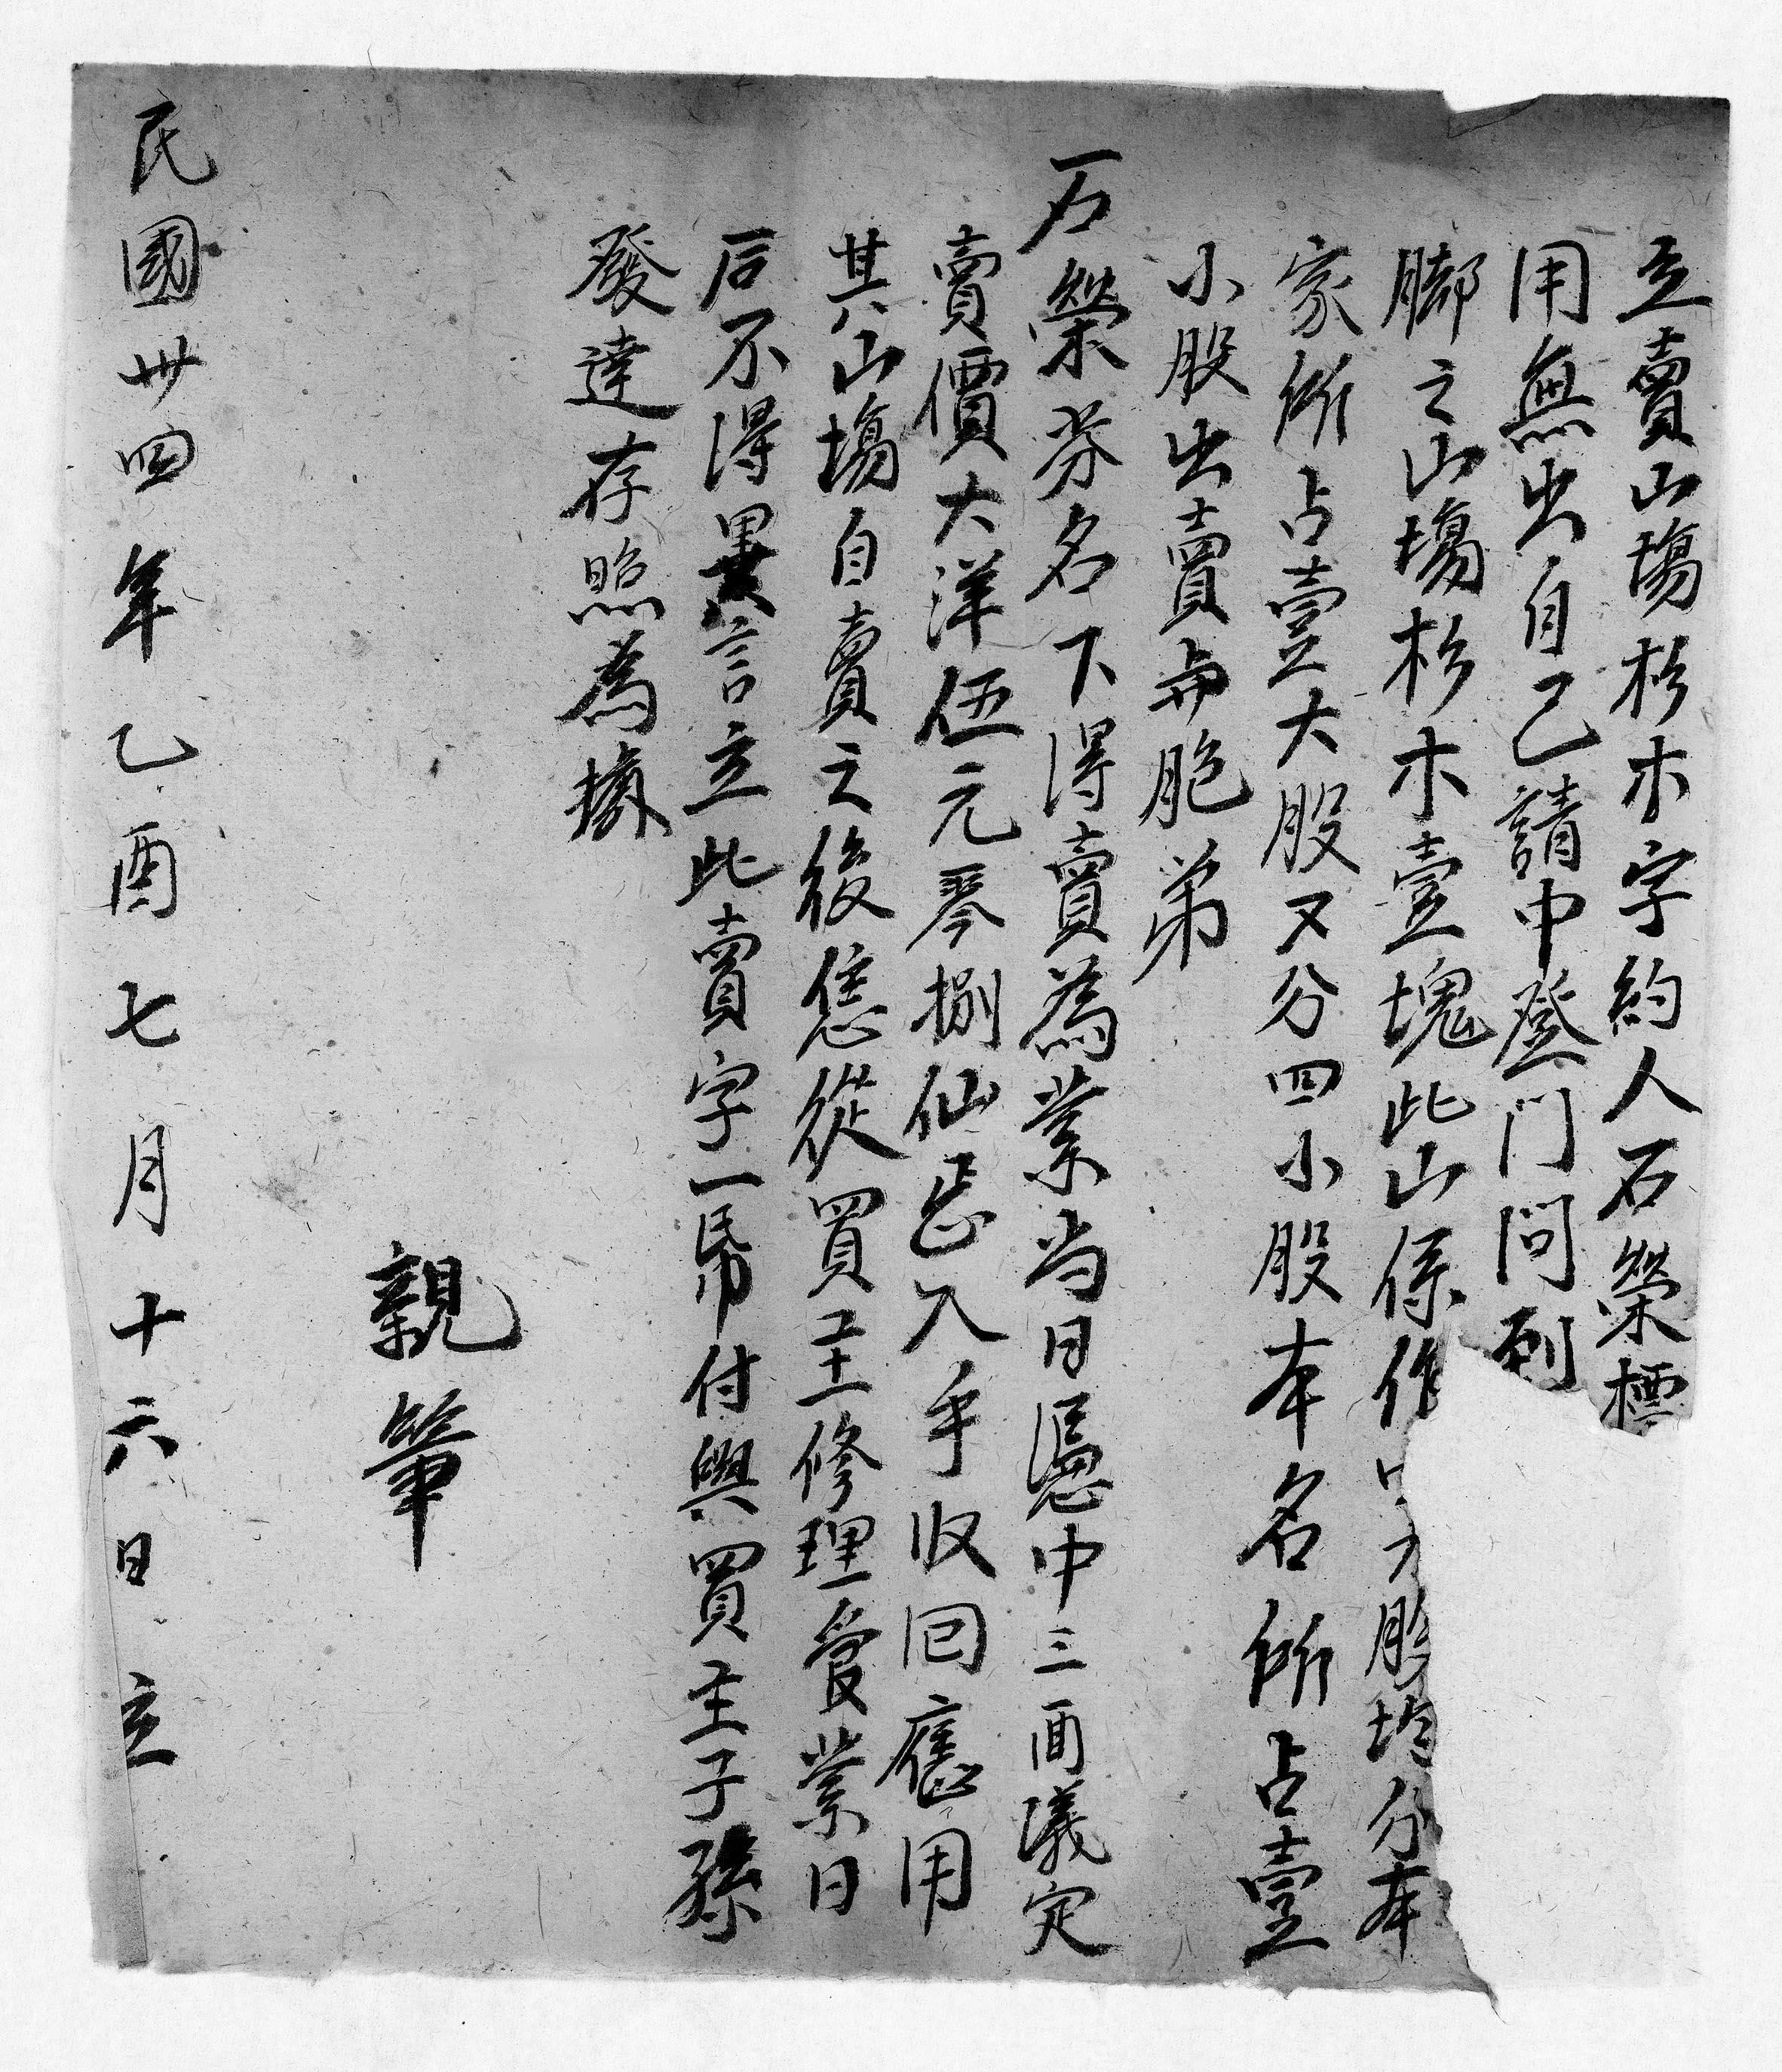 立賣山塲杉木字約人石榮標
用無出自己請中登门问到
腳之山塲杉木壹塊此山係作 股均分本
家所占壹大股又分四小股本名所占壹
小股出賣與胞弟
石榮芬名下得賣為業当日憑中三面議定
賣價大洋伍元零捌仙正入手收回應用
其山塲自賣之後恁從買主修理管業日
后不得異言立此賣字一帋付與買主子孫
發達存照為據
親筆
民國卅四年乙酉七月十六日立